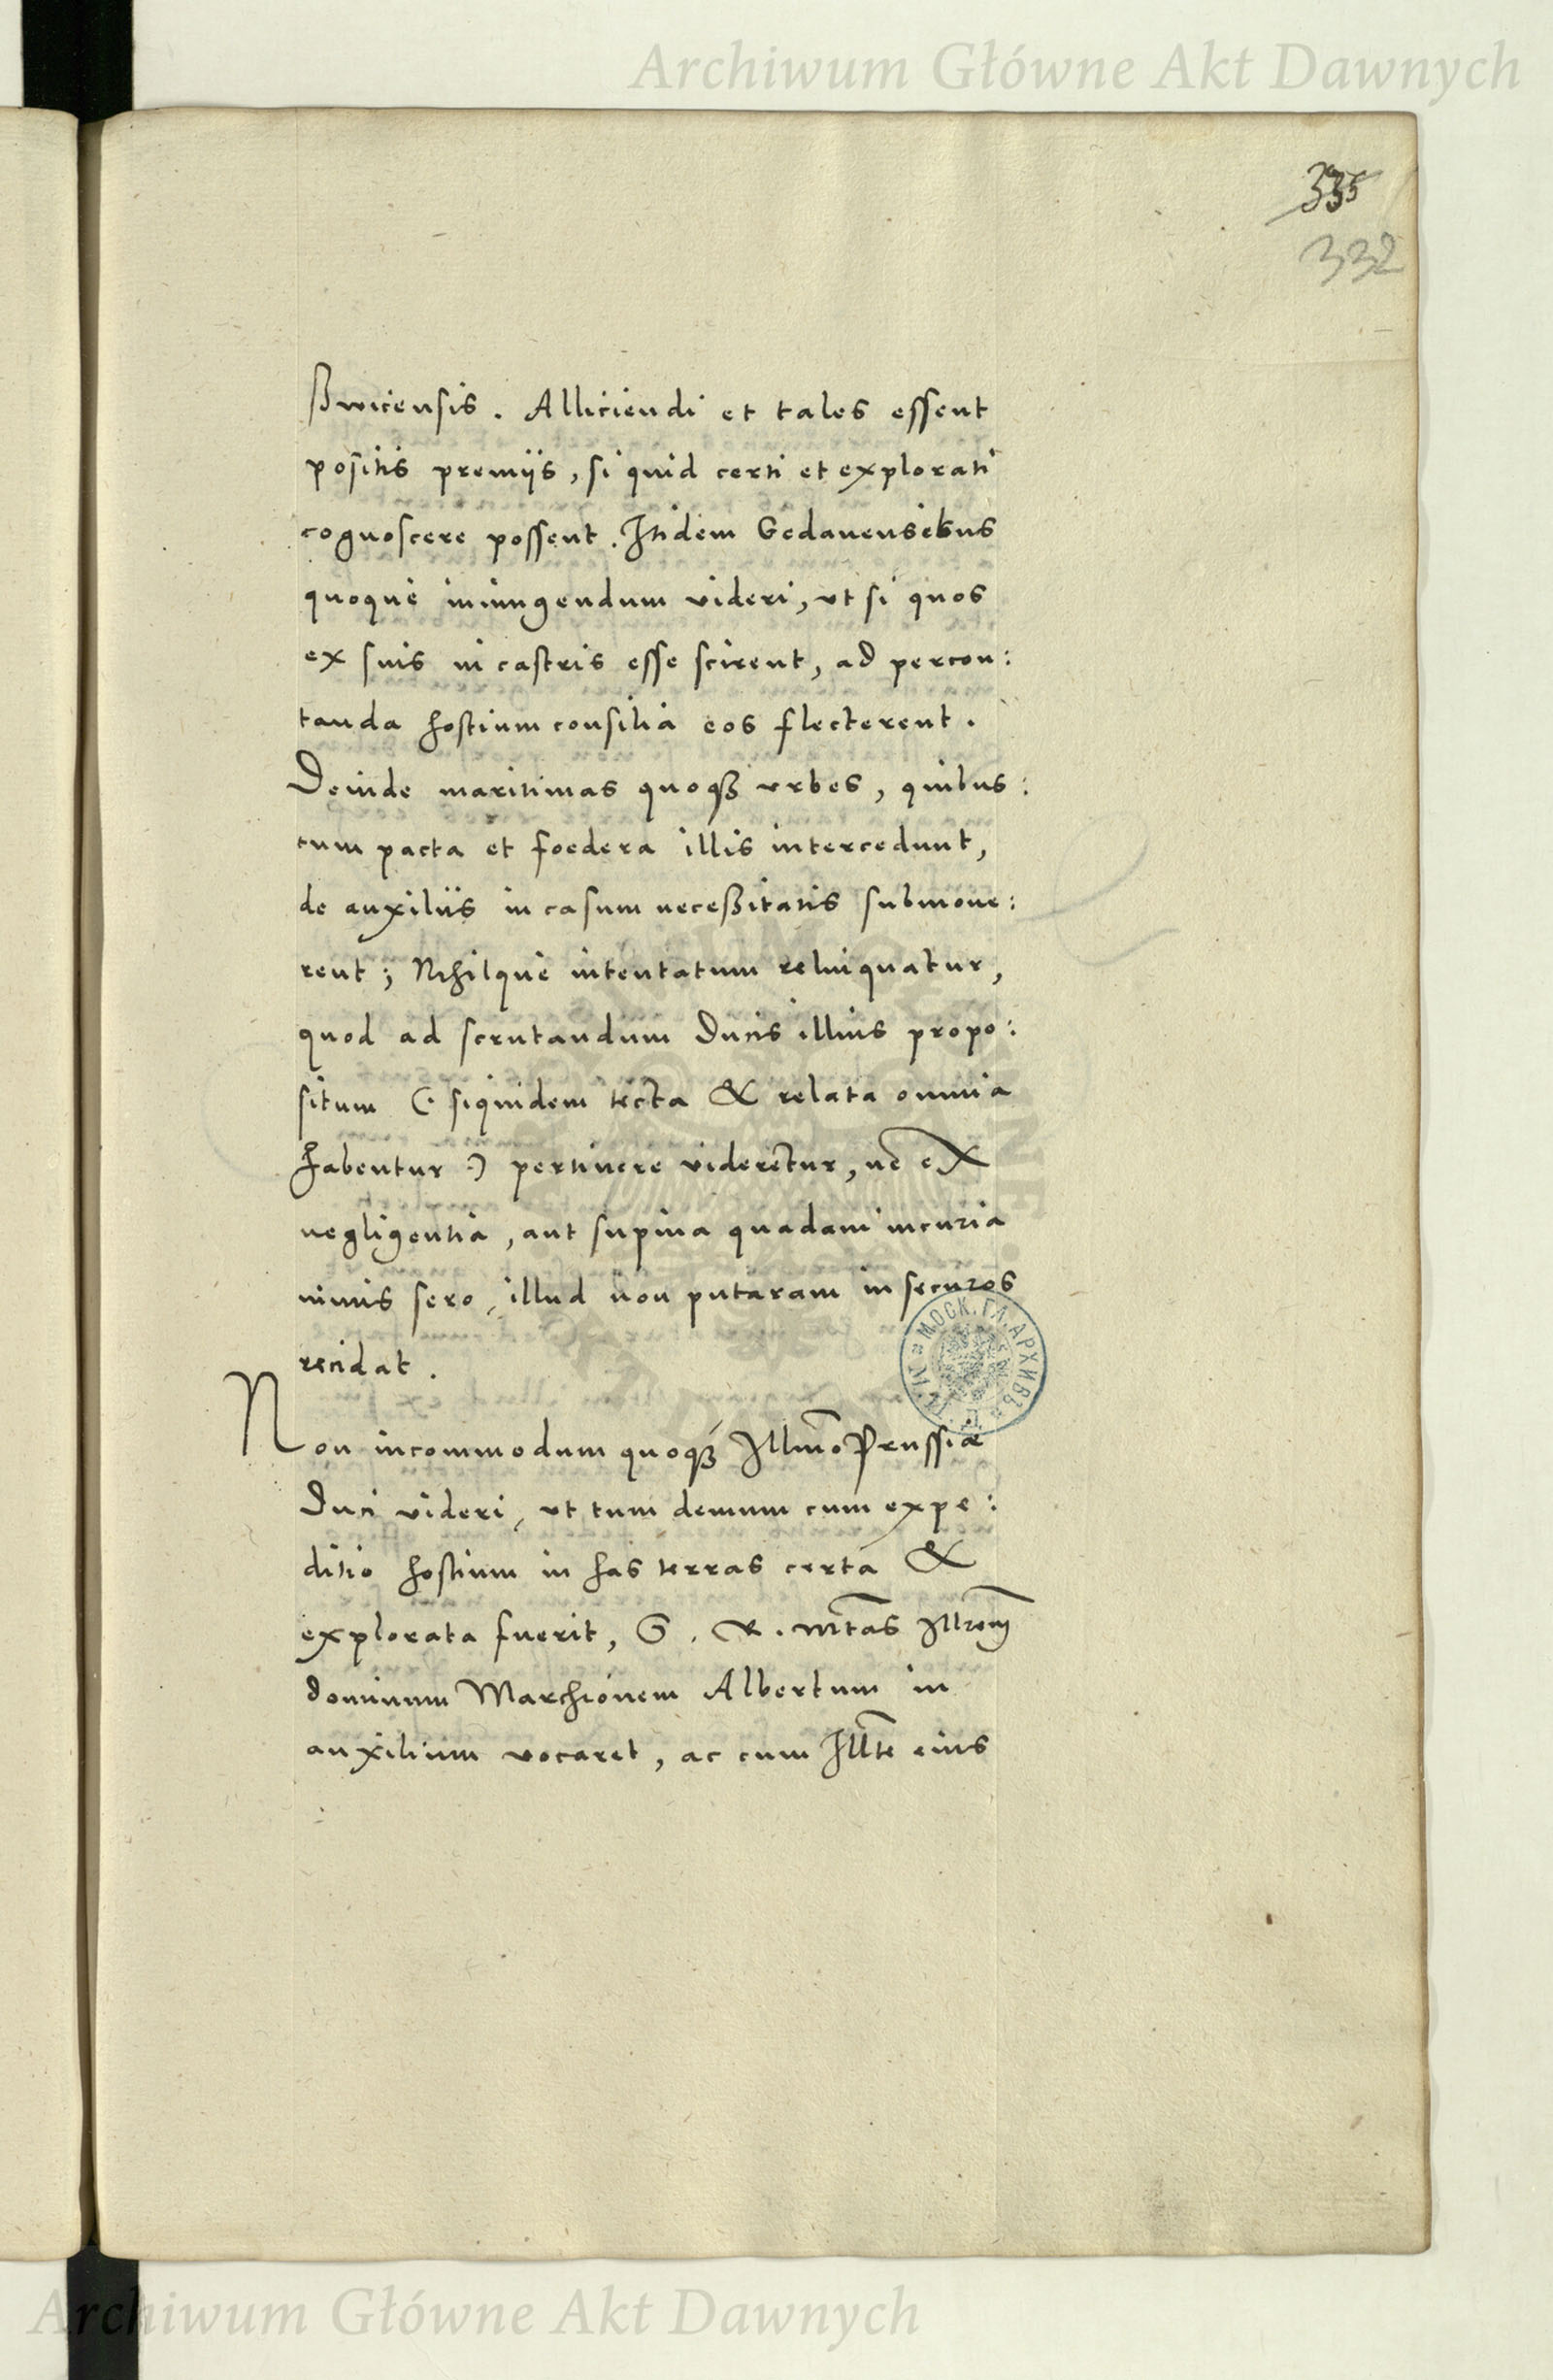 Archiwum Główne Akt Dawnych
335
332
ßwicensis. Alliciendi et tales essent
positis premijs, si quid certi et explorati
cognoscere possent. Itidem Gedanensibus
quoque iniungendum videri, vt si quos
ex suis in castris esse scirent, ad percon:
tanda hostium consilia eos flecterent.
Deinde maritimas quoqȝ vrbes, quibus:
cum pacta et foedera illis intercedunt,
de auxiliis in casum neceßitatis submone:
rent; Nihilque intentatum relinquatur,
quod ad scrutandum Ducis illius propo:
situm (: siquidem tecta & relata omnia
habentur :) pertinere viderentur, ne ex
negligentia, aut supina quadam incuria
nimis sero, illud non putaram in securos
recidat.
Non incommodum quoqȝ Illmo Prussiæ
Duci videri, vt tum demum cum expe:
ditio hostium in has terras certa &
explorata fuerit, S. R. Mtas Illrem
dominum Marchionem Albertum in
auxilium vocaret, ac cum Illte eius
МОСК. ГЛ. АРХИВЪ
Archiwum Główne Akt Dawnych